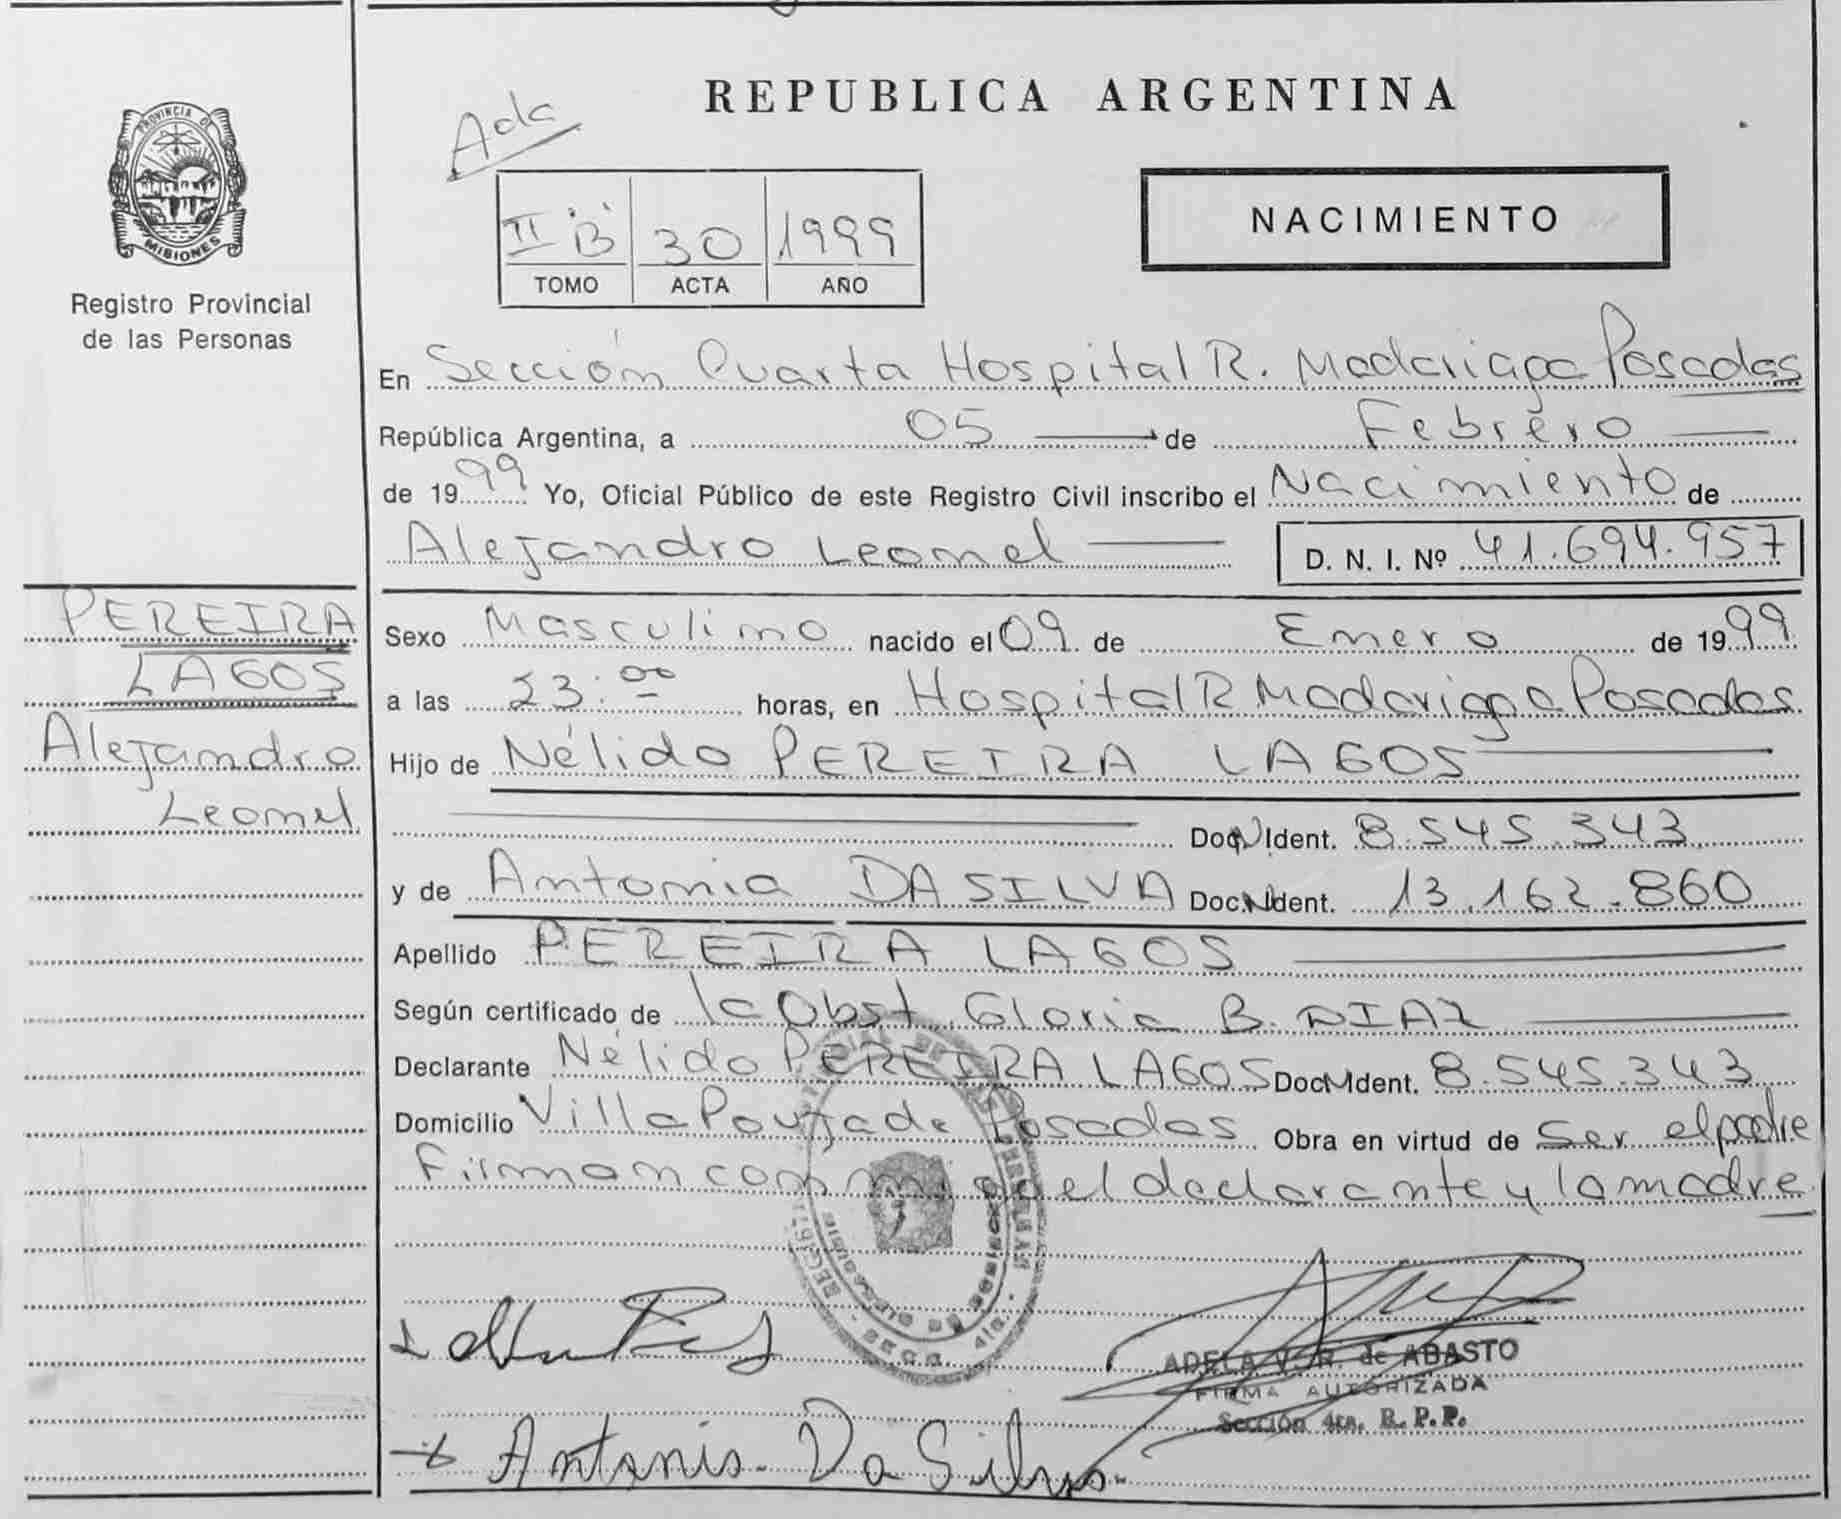 PROVINCIA DE
MISIONES
Registro Provincial
de las Personas
PEREIRA
LAGOS
Alejandro
Leonel
REPUBLICA ARGENTINA
Ada
II "B" 30 1999
TOMO ACTA AÑO
NACIMIENTO
En Sección Cuarta Hospital R. Madariaga Posadas
República Argentina, a 05 de Febrero
de 1999 Yo, Oficial Público de este Registro Civil inscribo el Nacimiento de
Alejandro Leonel D. N. I. Nº 41.694.957
Sexo Masculino nacido el 09 de Enero de 1999
a las 23:00 horas, en Hospital R Madariaga Posadas
Hijo de Nélido PEREIRA LAGOS
Doc. N Ident. 8.545.343
y de Antonia DA SILVA Doc. N Ident. 13.162.860
Apellido PEREIRA LAGOS
Según certificado de la Obst. Gloria B. DIAZ
Declarante Nélido PEREIRA LAGOS Doc N Ident. 8.545.343
Domicilio Villa Poujade Posadas Obra en virtud de Ser el padre
Firman conmigo el declarante y la madre
ADELA V. R. de ABASTO
FIRMA AUTORIZADA
Sección 4ta. R. P. P.
Antonia Da Silva